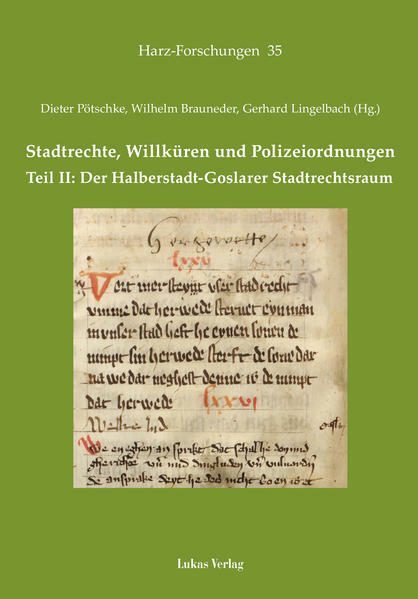 Harz-Forschungen 35
Dieter Pötschke, Wilhelm Brauneder, Gerhard Lingelbach (Hg.)
Stadtrechte, Willküren und Polizeiordnungen
Teil II: Der Halberstadt-Goslarer Stadtrechtsraum
Hergewette
lxxv
vser stadrecht
vmme dat herwede steruet eyn man
in vnser stad heft he eynen sonen de
nimpt sin herwede sterft de sone dar
na we dar neghest denne is de nimpt
dat herwede lxxvi
We en eghen an sprikt dat schal he don vnd
gherichte vnd dingluden
de ansprake
Lukas Verlag